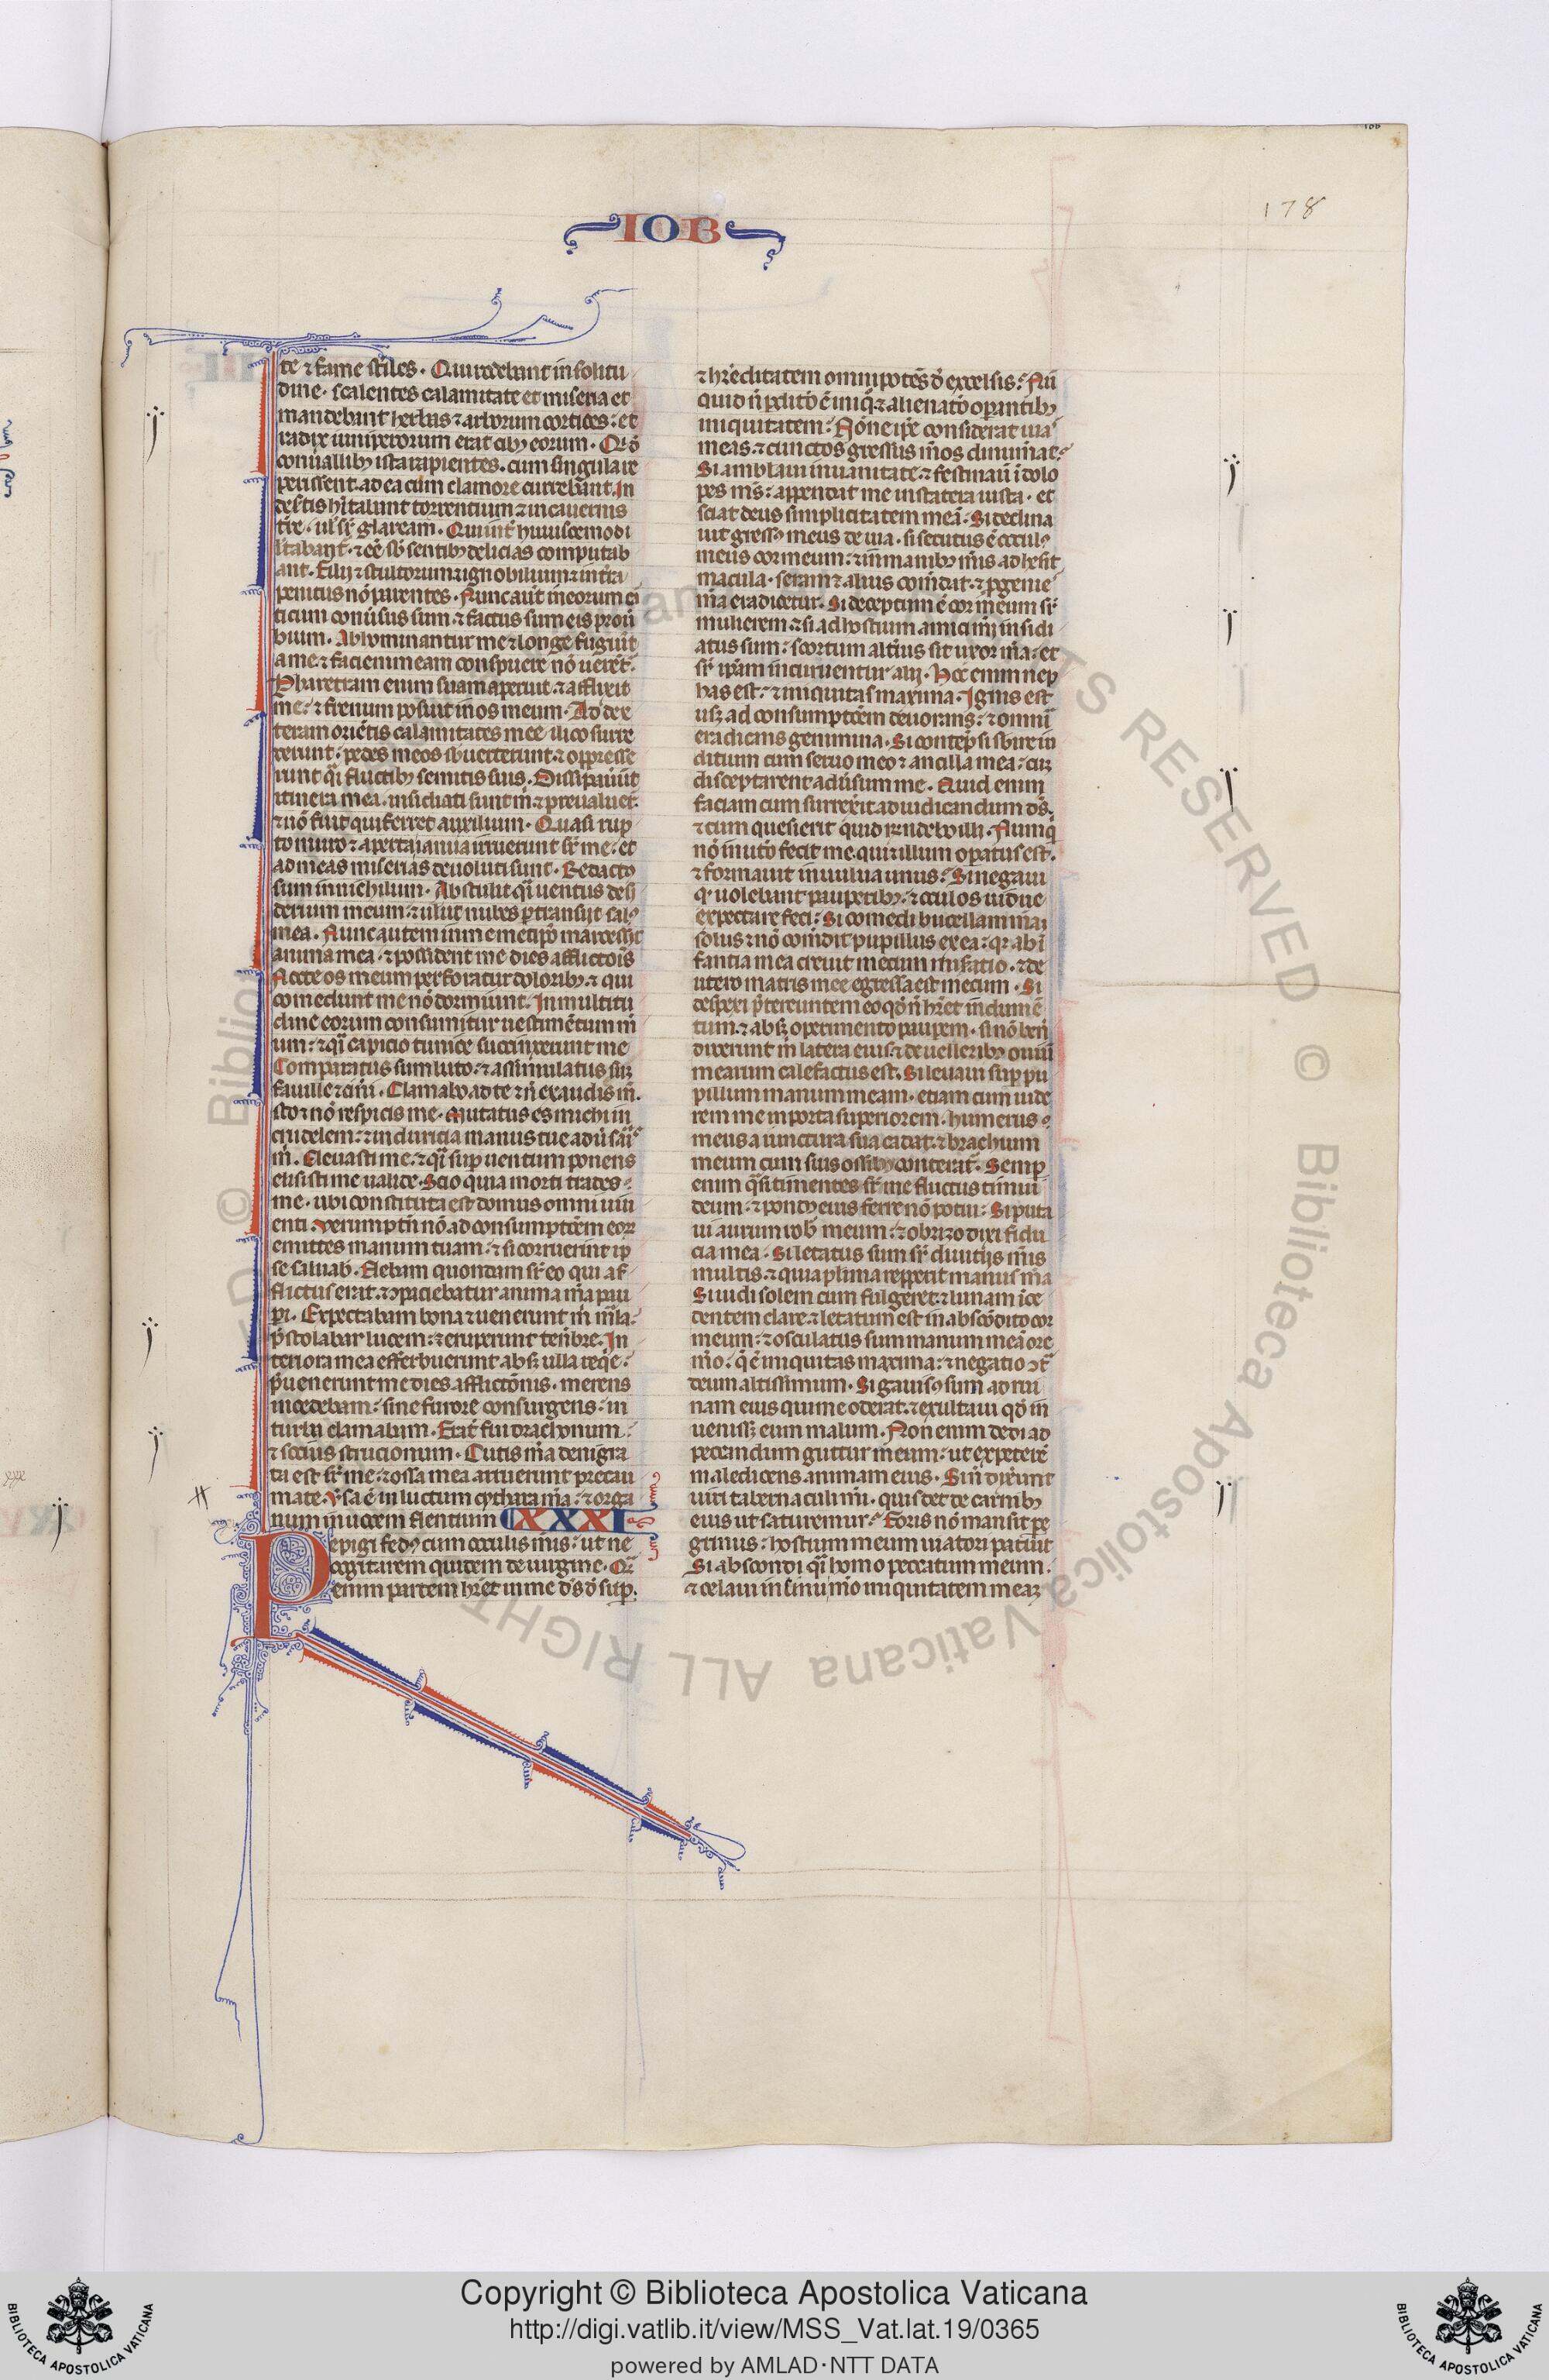 178
IOB
te ⁊ fame st̾iles. Qui rodebant in solitu
dine. scalentes calamitate et miseria et
mandebant herbas ⁊ arborum cortices: et
radix iuniperorum erat cibꝰ eorum. Qi d̾
conuallibꝫ ista rapientes. cum singula re
perissent. ad ea cum clamore currebant. In
des̾tis h̾itabant torrentium ⁊ in cauernis
tr̄e. ul̾ sr̄ glaream. Qui int̾ huiuscemodi
l̾tabant̾. ⁊ eē sb̾ sentibꝫ delicias computab
ant. Filij stultorum ⁊ ignobilium ⁊ in tr̄a
penitus nō parentes. Nunc aūt in eorum cā
ticum conūsus sum. ⁊ factus sum eis prou̾
bium. Abhominantur me ⁊ longe fugiūt
a me. ⁊ faciem meam conspuere nō uerēt̾.
Pharetram enim suam aperuit. ⁊ afflixit
me. ⁊ frenum posuit in os meum. Ad dex
teram oriētis calamitates mee ilico surre
xerunt. pedes meos sb̾uerterunt. ⁊ oppresse
runt qͣi fluctibꝫ semitis suis. Dissipauūt
itinera mea. insidiati sunt m̄ ⁊ preualuer̄.
⁊ nō fuit qui ferret auxilium. Quasi rup
to muro ⁊ aperta ianua irruerunt sr̄ me. et
ad meas miserias deuoluti sunt. Redactꝰ
sum in nichilum. Abstulit qͣi uentus desi
derium meum. ⁊ uelut nubes ꝑtransijt salꝰ
mea. Nunc autem in memetip̄o marcescit
anima mea. ⁊ possident me dies afflictōis
Nocte os meum perforatur doloribꝫ. ⁊ qui
comedunt me nō dormiunt. In multitu
dine eorum consumitur uestimētum m̄
um: ⁊ qͣi capicio tunice succinxerunt me
Comparatus sum luto: ⁊ assimulatus sūꝫ
fauille ⁊ cin̾i. Clamabo ad te ⁊ n̄ exaudis m̄.
sto ⁊ nō respicis me. Mutatus es michi in
crudelem: ⁊ in duricia manus tue adu̾saͥs
m̄. Eleuasti me. ⁊ qͣi suꝑ uentum ponens
elisisti me ualide. Scio quia morti trades
me. ubi constituta est domus omni uiu
enti. Verumptn̄ nō ad consumptōem eorꝫ
emittes manum tuam: ⁊ si corruerint ip
se saluab̾. Flebam quondam sr̄ eo qui af
flictus erat. ⁊ ꝯpaciebatur anima m̄a pau
ꝑi. Expectabam bona ⁊ uenerunt m̄ m̄la.
p̄stolabar lucem: ⁊ eruperunt teneb̾re. In
teriora mea efferbuerunt absꝫ ulla reqͥe.
p̄uenerunt me dies afflictōnis. merens
incedebam. sine furore consurgens. in
turba clamabam. Frat̾ fui drachonum.
⁊ socius strucionum. Cutis m̄a denigra
ta est sr̄ me. ⁊ ossa mea aruerunt pre cau
mate. v̾sa ē in luctum cythara m̄a. ⁊ orga
num in uocem flentium XXXI
Pepigi fedꝰ cum occulis m̄is: ut ne
cogitarem quidem de uirgine. Qͣm
enim partem h̄ret in me dēs d̾ suꝑ.
⁊ h̄reditatem omnipotēs d̾ excelsis: Nū
quid n̄ ꝑditō ē iniqͦ. ⁊ alienatō oꝑantibꝫ
iniquitatem: Nōne ip̄e considerat uia
meas. ⁊ cunctos gressus m̄os dinumat.
Si amblaui in uanitate. ⁊ festinauit ī dolo
pes m̄s. appendat me in statera iusta. et
sciat deus simplicitatem meā. Si declina
uit gressꝰ meus de uia. si secutus ē occulꝰ
meus cor meum: ⁊ in manibꝫ m̄is adhesit
macula. seram ⁊ alius com̄dat. ⁊ ꝓgenie
m̄a eradicetur. Si deceptum ē cor meum sr̄
mulierem. ⁊ si ad hostium amici m̄i insidi
atus sum: scortum alt̾ius sit uxor m̄a: et
sr̄ ip̄am incuruentur alij. Hoc enim nep
has est: ⁊ iniquitas maxima. Ignis est
usꝫ ad consumptōem deuorans. ⁊ omnīa
eradicans genimina. Si contēpsi sbire iu
dicium cum seruo meo ⁊ ancilla mea: cūꝫ
disceptarent adu̾sum me. Quid enim
faciam cum surrexit̾ ad iudicandum dēs.
⁊ cum quesierit quid rñdebo illi. Nunqͥ
nō in utō fecit me. qui ⁊ illum oꝑatus est.
⁊ formauit in uulua unus: Si negaui
qͩ uolebant pauperibꝫ. ⁊ oculos uidue
expectare feci. Si comedi bucellam m̄aꝫ
solus ⁊ nō com̄dit pupillus ex ea: qꝛ ab ī
fantia mea creuit mecum miseratio. ⁊ de
utero matris mee egressa est mecum. Si
despexi p̄tereuntem eo qd̄ n̄ h̄ret indumē
tum. ⁊ absꝫ operimento pauꝑem. si nō bn̄
dixerunt m̄ latera eius. ⁊ de uelleribꝫ ouiū
mearum calefactus est. Si leuaui suꝑ pu
pillum manum meam. etiam cum uide
rem me in porta superiorem. humerus
meus a iunctura sua cadat. ⁊ brachium
meum cum suis ossibꝫ conterat̾. Semꝑ
enim qͣsi timentes sr̄ me fluctus timui
deum. ⁊ pondꝰ eius ferre nō potui. Si puta
ui aurum rob̾ meum. ⁊ obrizo dixi fidu
cia mea. Si letatus sum sr̄ diuitijs m̄is
multis. ⁊ quia plima repperit manus m̄a
Si uidi solem cum fulgeret. ⁊ lunam īce
dentem clare. ⁊ letatum est in abscōdito cor
meum: ⁊ osculatus sum manum meā ore
m̄o. qͥ ē iniquitas maxima. ⁊ negatio ꝯtͣ
deum altissimum. Si gauisꝰ sum ad rui
nam eius qui me oderat. ⁊ exultaui qd̄ in
uenissꝫ eum malum. Non enim dedi ad
peccandum guttur meum: ut expeterē
maledicens animam eius. Si n̄ dixerunt
uiri tabernaculi m̄i. quis det de carnibꝫ
eius ut saturemur. Foris nō mansit pe
grinus: hostium meum uiatori patuit
Si abscondi qͣi homo peccatum meum.
⁊ celaui in sinu m̄o iniquitatem meaꝫ
Copyright © Biblioteca Apostolica Vaticana
http://digi.vatlib.it/view/MSS_Vat.lat.19/0365
powered by AMLAD·NTT DATA
BIBLIOTECA APOSTOLICA VATICANA
BIBLIOTECA APOSTOLICA VATICANA